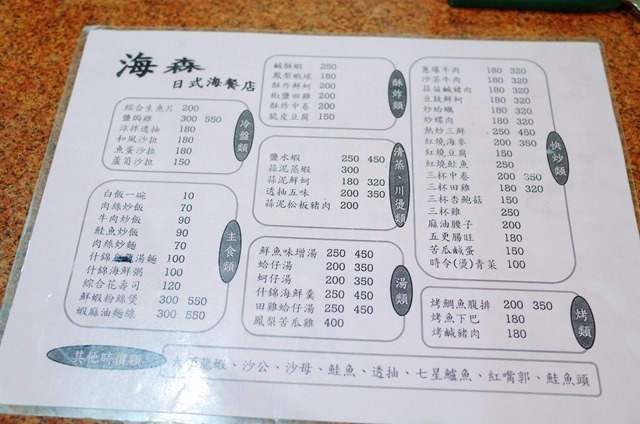 海森
日式海餐店
冷盤類
綜合生魚片 200
鹽焗雞 300 550
涼拌透抽 180
和風沙拉 180
魚蛋沙拉 150
蘆筍沙拉 150
主食類
白飯一碗 10
肉絲炒飯 70
牛肉炒飯 90
鮭魚炒飯 90
肉絲炒麵 70
什錦 湯麵 100
什錦海鮮粥 100
綜合花壽司 120
鮮蝦粉絲煲 300 550
蝦麻油麵線 300 550
酥炸類
鹹酥蝦 250
鳳梨蝦球 180
酥炸鮮蚵 200
椒鹽田雞 200
酥炸中卷 200
脆皮豆腐 150
清蒸、川燙類
鹽水蝦 250 450
蒜泥蒸蝦 300
蒜泥鮮蚵 180 320
透抽五味 200 350
蒜泥松板豬肉 200
湯類
鮮魚味增湯 250 450
蛤仔湯 200 350
蚵仔湯 200 350
什錦海鮮羹 250 450
田雞蛤仔湯 250 450
鳳梨苦瓜雞 400
快炒類
蔥爆牛肉 180 320
沙茶牛肉 180 320
蒜苗鹹豬肉 180 320
豆豉鮮蚵 180 320
炒蛤蠣 180 320
炒螺肉 180 320
熱炒三鮮 250 450
紅燒海參 200 350
紅燒豆腐 150
紅燒鮭魚 250
三杯中卷 200 350
三杯田雞 180 320
三杯杏鮑菇 150
三杯雞 250
麻油腰子 200
五更腸旺 180
苦瓜鹹蛋 150
時令(燙)青菜 100
烤類
烤鯛魚腹排 200 350
烤魚下巴 180
烤鹹豬肉 180
其他時價類
龍蝦、沙公、沙母、鮭魚、透抽、七星鱸魚、紅嘴郭、鮭魚頭